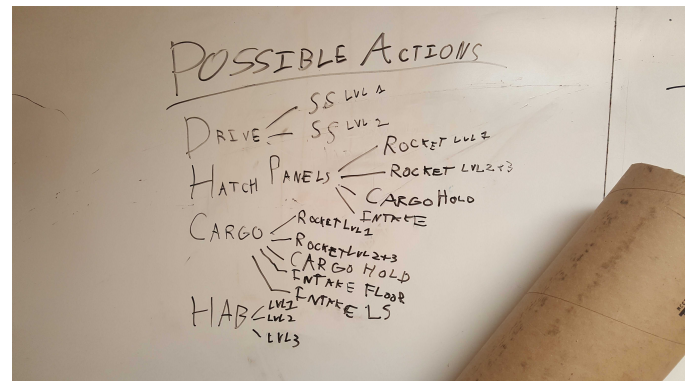 POSSIBLE ACTIONS
SS LVL 1
DRIVE
SS LVL 2
ROCKET LVL1
HATCH PANELS
ROCKET LVL2+3
CARGO HOLD
INTAKE
CARGO
ROCKET LVL1
ROCKET LVL2+3
CARGO HOLD
INTAKE FLOOR
INTAKE LS
HAB
LVL1
LVL2
LVL3